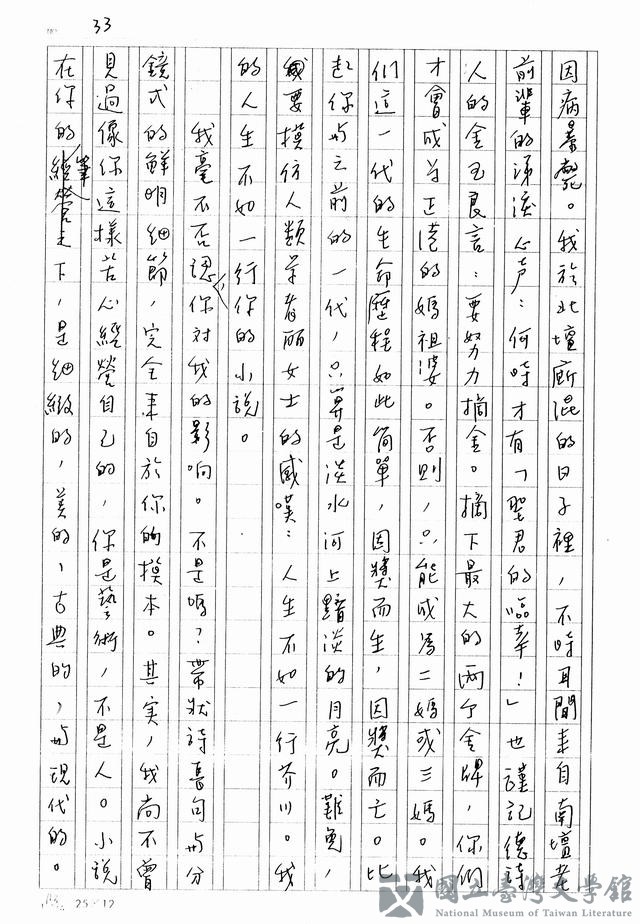 33
因病暴斃。我於北壇廝混的日子裡,不時耳聞来自南壇老
前輩的涕淚心声:何時才有「聖君的臨幸!」也謹記德詩
人的金玉良言:要努力摘金。摘下最大的兩个金牌,你們
才會成为正港的媽祖婆。否則,只能成為二媽或三媽。我
们這一代的生命歷程如此简單,因獎而生,因獎而亡。比
起你与之前的一代,只算是淡水河上黯淡的月亮。難免,
要模仿人類学者丽女士的感嘆:人生不如一行芥川。我
的人生不如一行你的小說。
我毫不否認你對我的影响。不是嗎?帶狀詩喜句与分
鏡式的鮮明细節,完全来自於你的摸本。其实,我尚不曾
見過像你這樣苦心經營自己的,你是藝術,不是人。小說
在你的筆下,是细緻的,美的,古典的,与現代的。
25×12
國立臺灣文學館
National Museum of Taiwan Literature